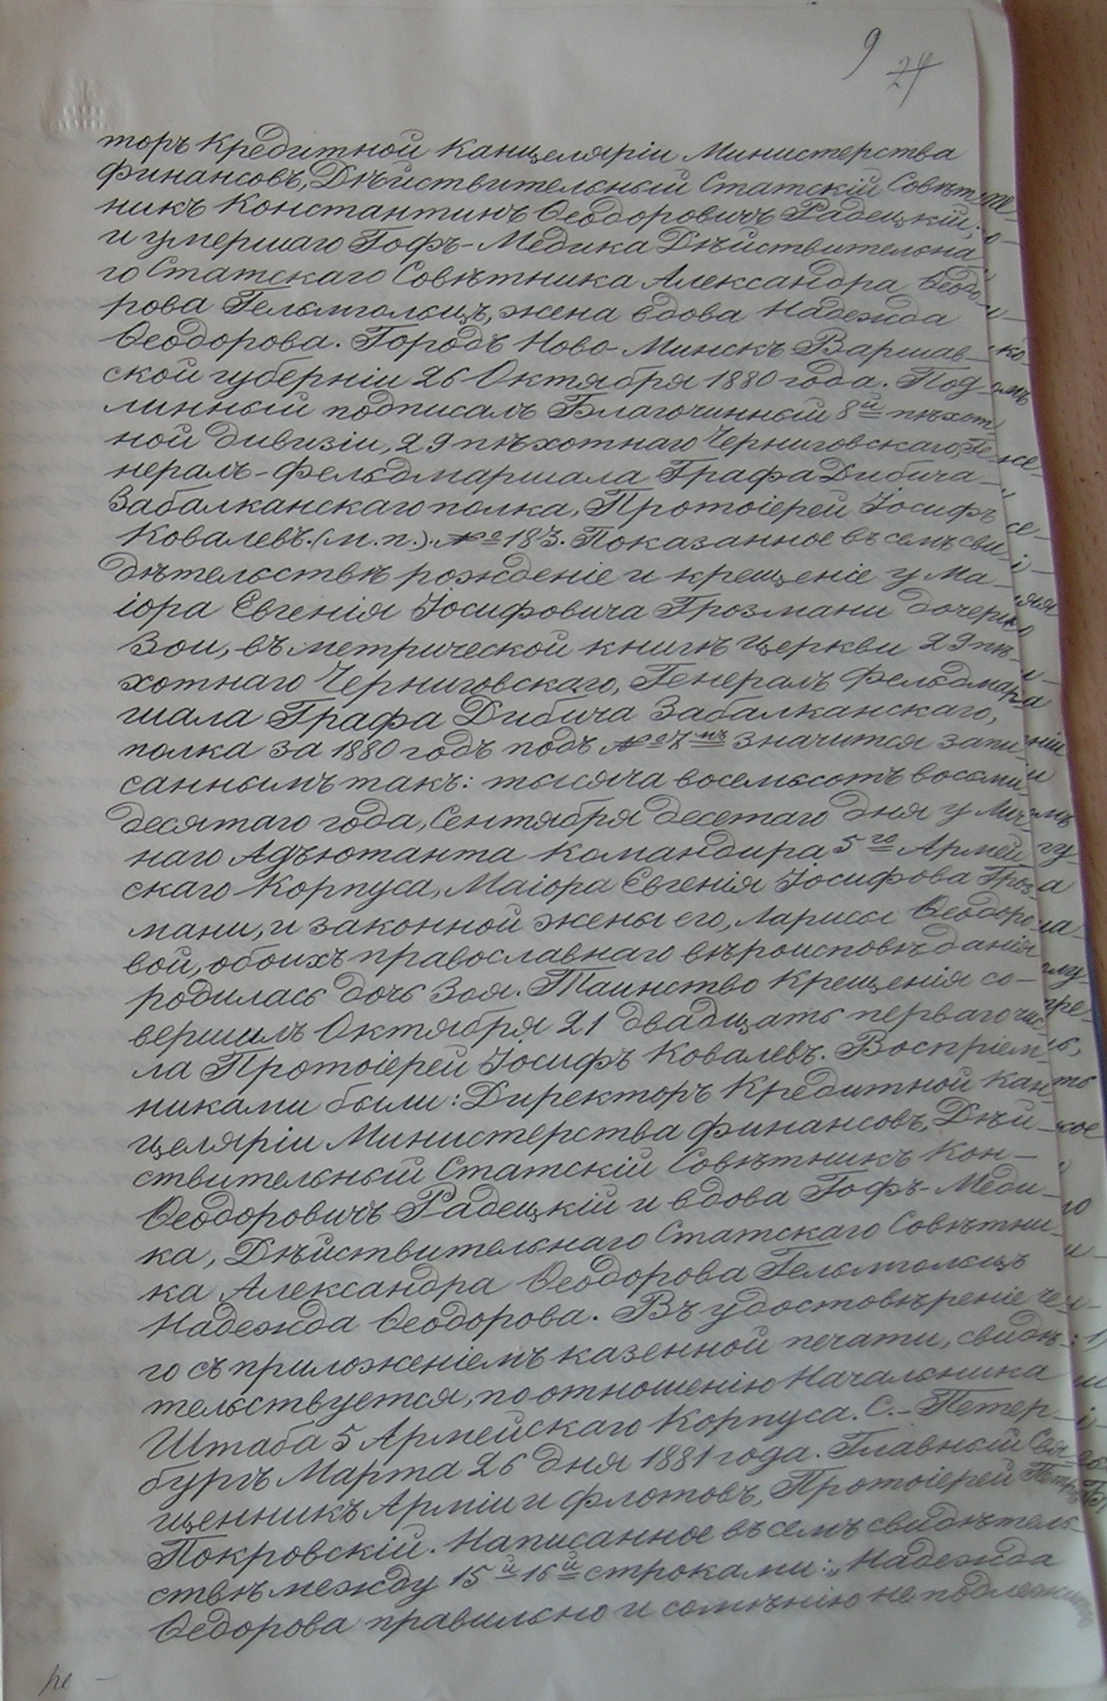 9
24
торъ Кредитной Канцеляріи Министерства
Финансовъ, Дѣйствительный Статскій Совѣт
никъ Константинъ Ѳеодоровичъ Радецкій;
и умершаго Гофъ-Медика Дѣйствительна
го Статскаго Совѣтника Александра Ѳеодо
рова Гельмгольцъ, жена вдова Надежда
Ѳеодорова. Городъ Ново-Минскъ Варшав-
ской губерніи 26 Октября 1880 года. Под
линный подписалъ Благочинный 8й пѣхот
ной дивизіи, 29 пѣхотнаго Черниговскаго, Ге
нералъ-Фельдмаршала Графа Дибича
Забалканскаго полка, Протоіерей Іосифъ
Ковалевъ. (м.п.). № 183. Показанное въ семъ сви
дѣтельствѣ рожденіе и крещеніе у Ма-
іора Евгенія Іосифовича Грозмани дочери
Зои, въ метрической книгѣ церкви 29 пѣ-
хотнаго Черниговскаго, Генералъ Фельдмар
шала Графа Дибича Забалканскаго,
полка за 1880 годъ подъ № 7мъ значится запи
саннымъ такъ: тысяча восемьсотъ восьми
десятаго года, Сентября десетаго дня у Лич
наго Адъютанта командира 5го Армей
скаго Корпуса, Маіора Евгенія Іосифова Гроз
мани, и законной жены его, Ларисы Ѳеодоро
вой, обоихъ православнаго вѣроисповѣданія
родилась дочь Зоя. Таинство Крещенія со-
вершилъ Октября 21 двадцать перваго чис
ла Протоіерей Іосифъ Ковалевъ. Воспріем
никами были: Директоръ Кредитной Кан
целяріи Министерства Финансовъ, Дѣй-
ствительный Статскій Совѣтникъ Кон-
Ѳеодоровичъ Радецкій и вдова Гофъ-Меди-
ка, Дѣйствительнаго Статскаго Совѣтни-
ка Александра Ѳеодорова Гельмгольцъ
Надежда Ѳеодорова. Въ удостовѣреніе че
го съ приложеніемъ казенной печати, свидѣ
тельствуется, по отношенію Начальника
Штаба 5 Армейскаго Корпуса. С.-Петер-
бургъ Марта 26 дня 1881 года. Главный Свя
щенникъ Арміи и флотовъ, Протоіерей Петръ
Покровскій. Написанное въ семъ свидѣтель
ствѣ между 15й 16й строками: „Надежда
Ѳедорова правильно и сомнѣнію не подлежитъ